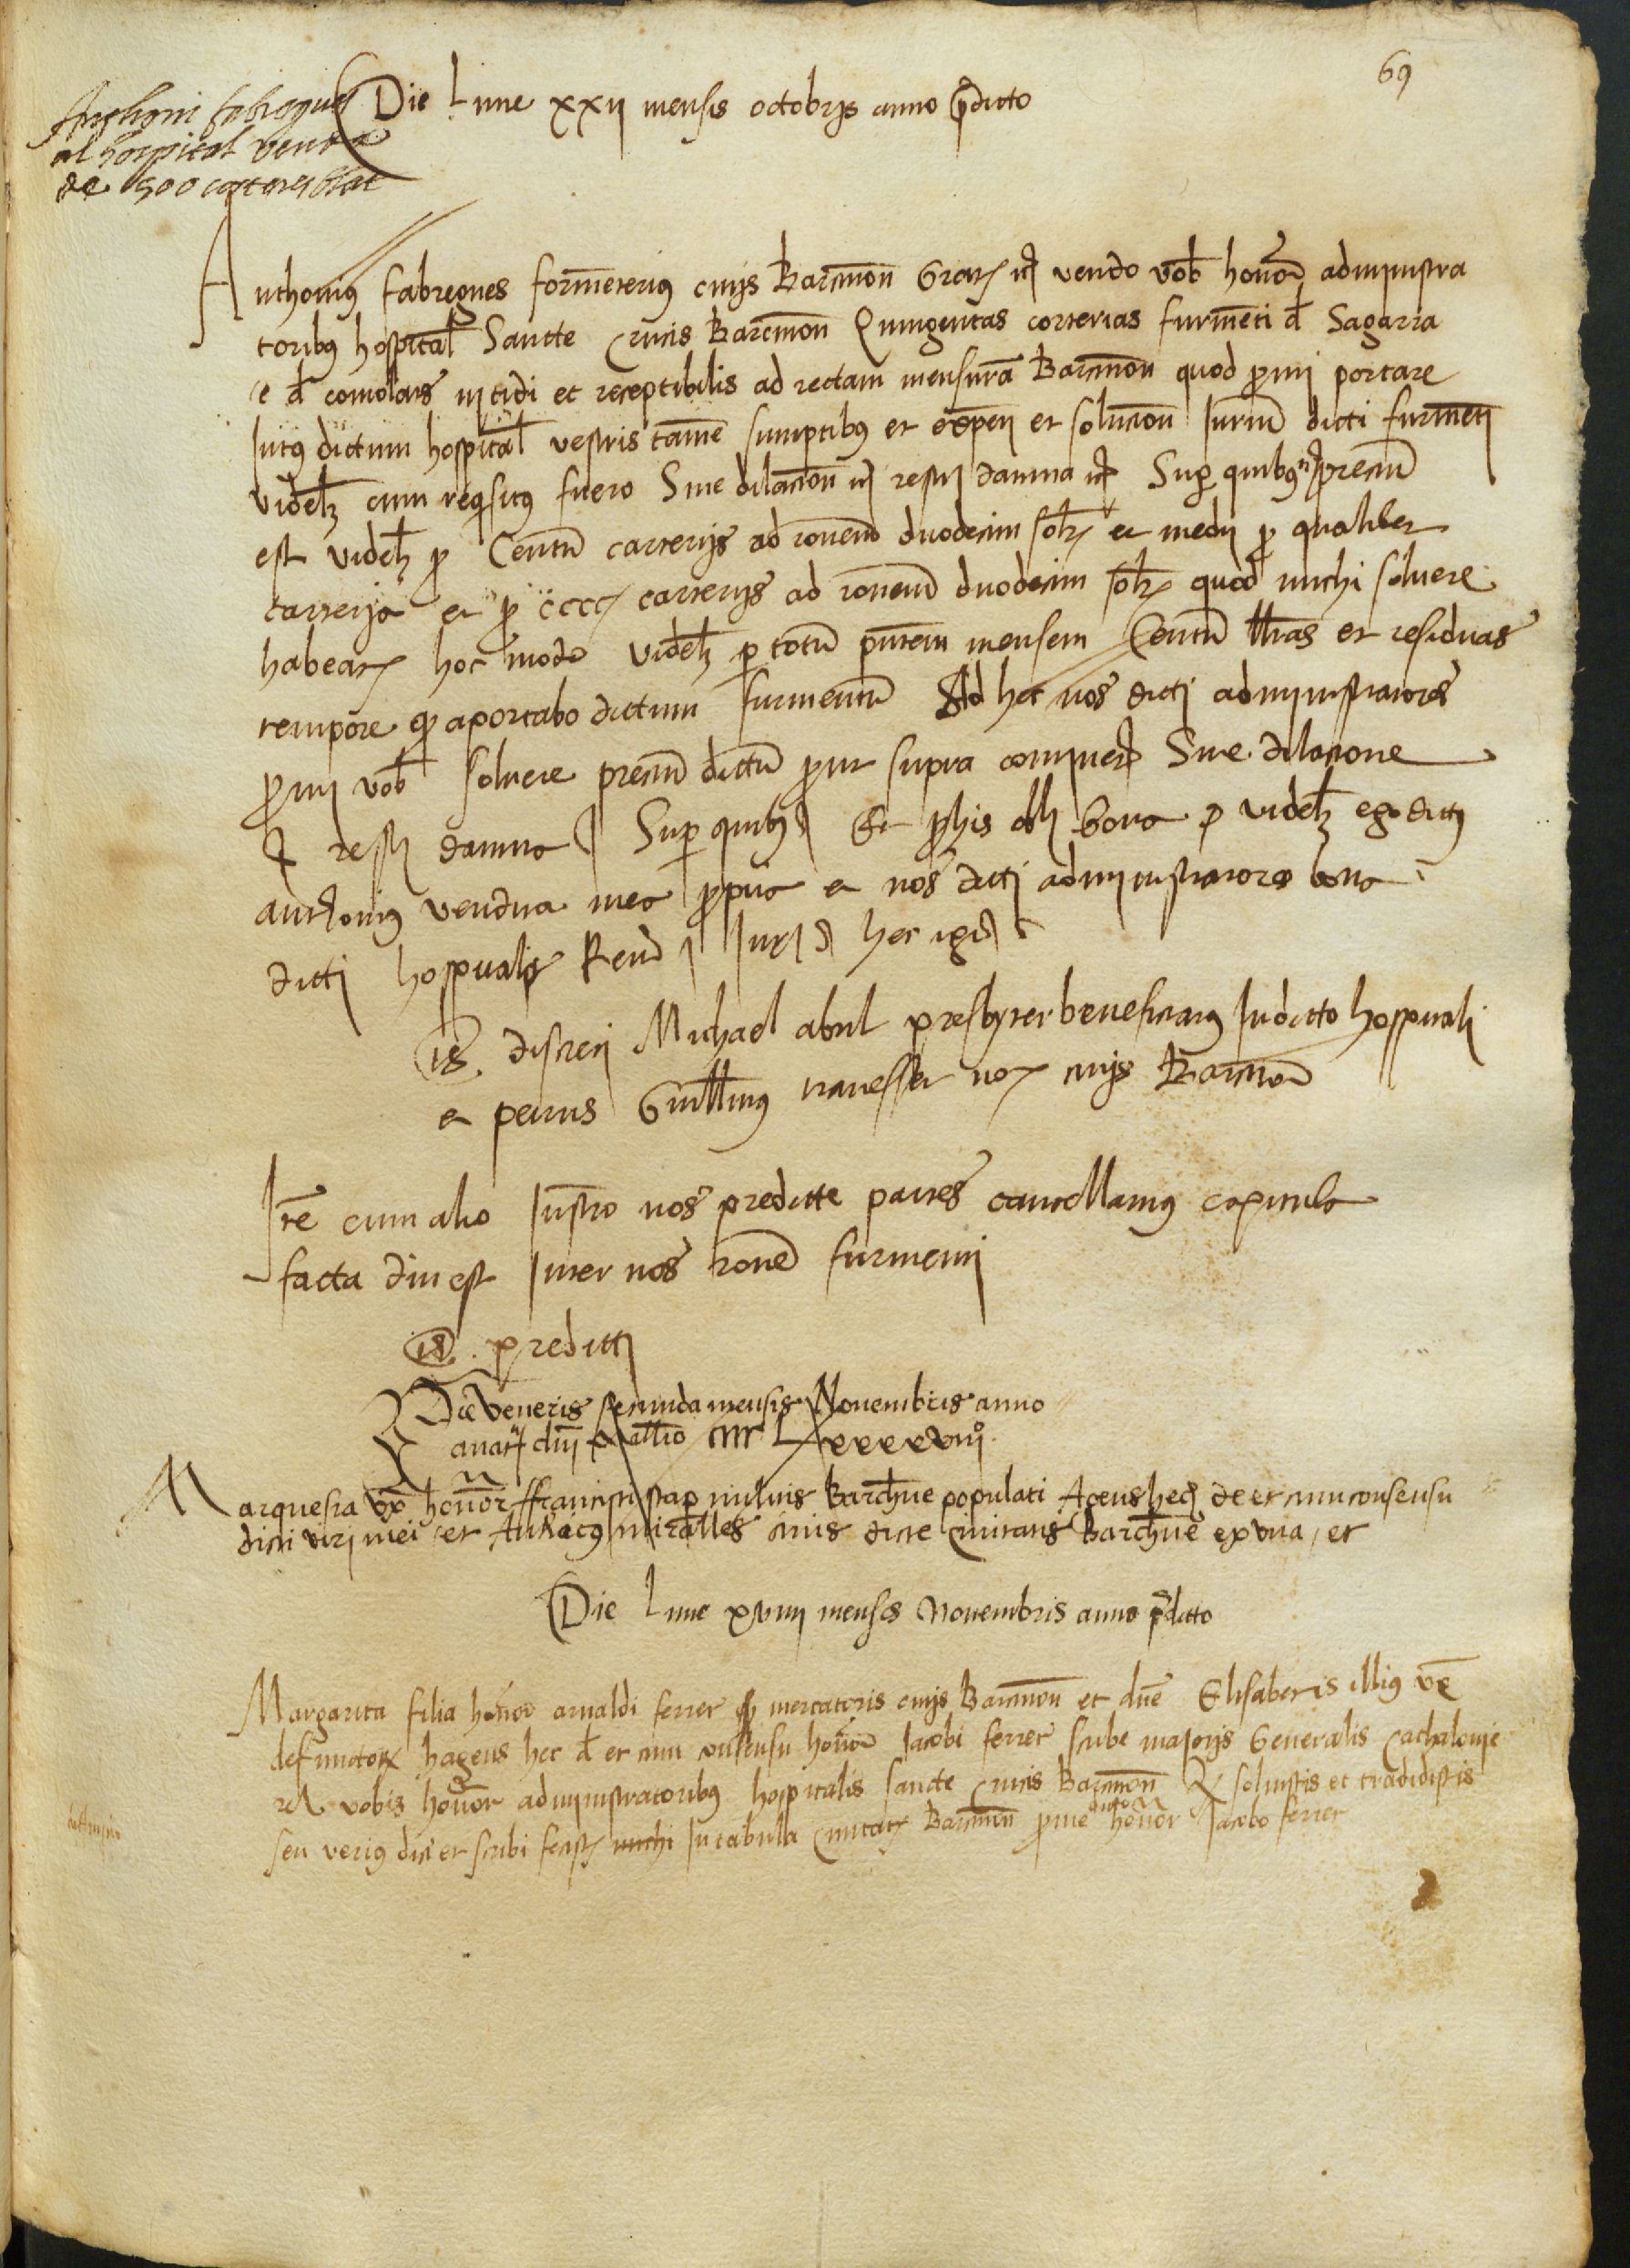 69
Anthoni fabregues
al hospital venda
de 500 corteres blat
Die Lune xxij mensis octobris anno p̄dicto
Anthonius fabregues formēterius civis Barcinon̄ Gratis vendo vob̄ honor̄ administra
toribus hospital̄ Sancte Crucis Barcinon̄ Quingentas corterias furmēti d̄ Sagarra
e d̄ comolars nitidi et receptibilis ad rectam mensurā Barcinon̄ quod promi portare
Intus dictum hospital̄ vestris tamē sumptibus et expen et solucion̄ Iuriū dicti furmēti
videlz cum reqsitus fuero Sine dilacion̄ restit damna Sup quibus preciū
est videlz p Centū carterijs ad ronem duodecim solz et medij p qualibet
carterja et p cccc carterijs ad ronem duodecim solz quod michi solvere
habeatis hoc modo videlz p totū pntem mensem Centū llras et residuas
tempore q aportabo dictum furmentū Ad hec nos dicti administratores
promi vob̄ solvere preciū dictū prout supra continet Sine dilacione
restit damna Super quibus Et p his obli bona videlz ego dictus
anthonius vendita mea propria et nos dicti administratores bona
dicti hospitalis Ren Iur hec igit
ts. discreti Michael abril presbyter beneficiatus In dicto hospitali
et petrus Guillmus travesser not civis Barcinon̄
Itē cum alio Instro nos predicte partes cancellamus capitula
facta diu est Inter nos ronē furmenti
ts. predicti
Die Veneris secunda mensis Novembris anno
anat dnj Millio cccc Lxxxxviijº
Marquesia vx̄ honor̄ ffrancisci stap militis Barchn̄e populati Agens hec de et cum consensu
dicti viri mei et miralles civis dicte Civitatis Barchn̄e ex una / et
Die Lune xviiij mensis Novembris anno p̄dicto
Margarita filia honor̄ arnaldi ferrer q mercatoris civis Barcinon̄ et dn̄e Elisabetis illius vx̄
defunctorz hagens hec d̄ et cum consensu honor̄ Iacobi ferrer scribe majoris Generalis Cathalonie
vobis honor̄ administratoribus hospitalis sancte Crucis Barcinon̄ Q solvistis et tradidistis
seu verius dici et scribi fecistis michi In tabula Civitatis Barcinon̄ prime dicto honor̄ Jacobo ferrer